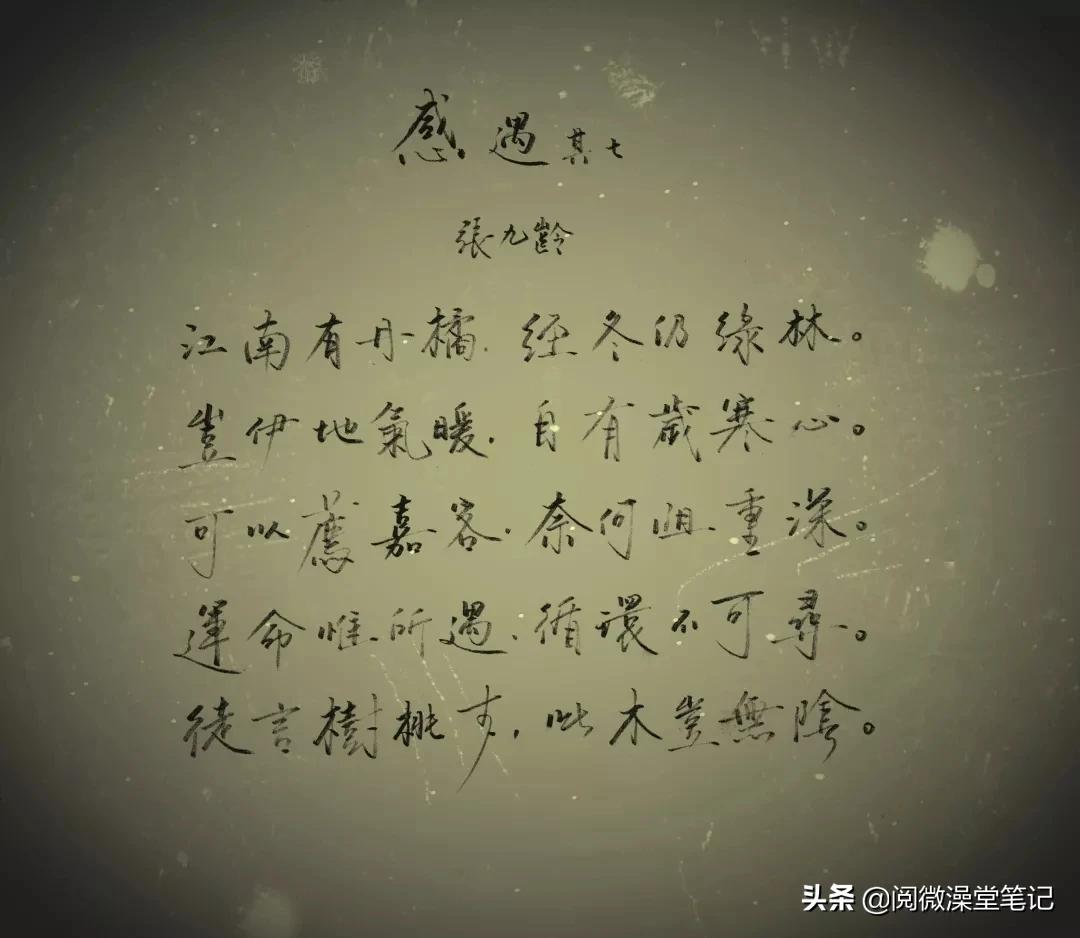 感遇其七
張九齡
江南有丹橘.经冬仍綠林。
豈伊地氣暖.自有歲寒心。
可以薦嘉客.奈何阻重深。
運命惟所遇.循環不可尋。
徒言樹桃李,此木豈無陰。
头条 @阅微澡堂笔记